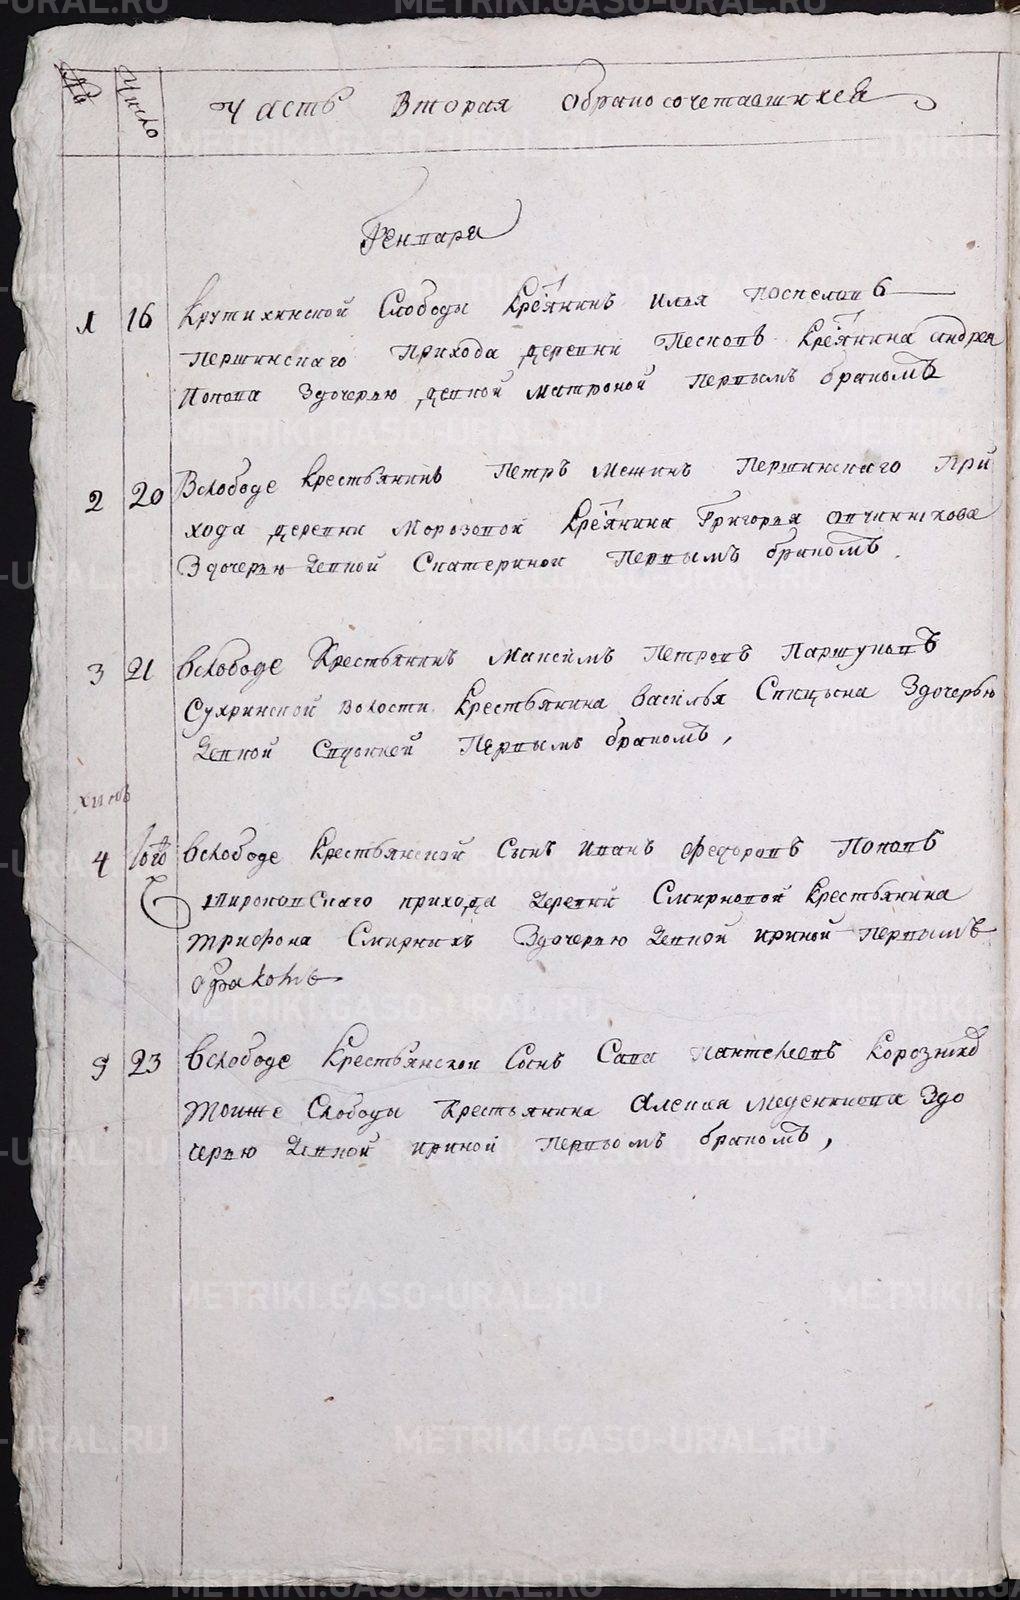 METRIKI.GASO-URAL.RU
№ Число Часть Вторая обракосочетавшихся
Генваря
1 16 Крутихинской Слободы Крѣянинъ илья Поспеловъ
Першинскаго Прихода деревни Песковъ Крѣянина андрея
Попова Здочерью девкой матроной Первымъ бракомъ
2 20 Вслободе крестьянинъ Петръ Першинскаго При
хода деревни Морозовой Крѣянина Григорья овчинникова
Здочерью Девкой Екатериной Первымъ бракомъ.
3 21 Вслободе Крестьянинъ Максимъ Петровъ Паршуковъ
Сухринской волости Крестьянина василья Спицына Здочерью
Девкой Первымъ бракомъ,
4 Вслободе Крестьянской Сынъ иванъ Федоровъ Поповъ
прихода Деревни Смирновой Крестьянина
трифона Смирныхъ Здочерью Девкой ириной Первымъ
бракомъ
5 23 Вслободе Крестьянской Сынъ Сава пантелеевъ
тоиже Слободы Крестьянина Алексея Здо
черью Девкой ириной Первьомъ бракомъ,